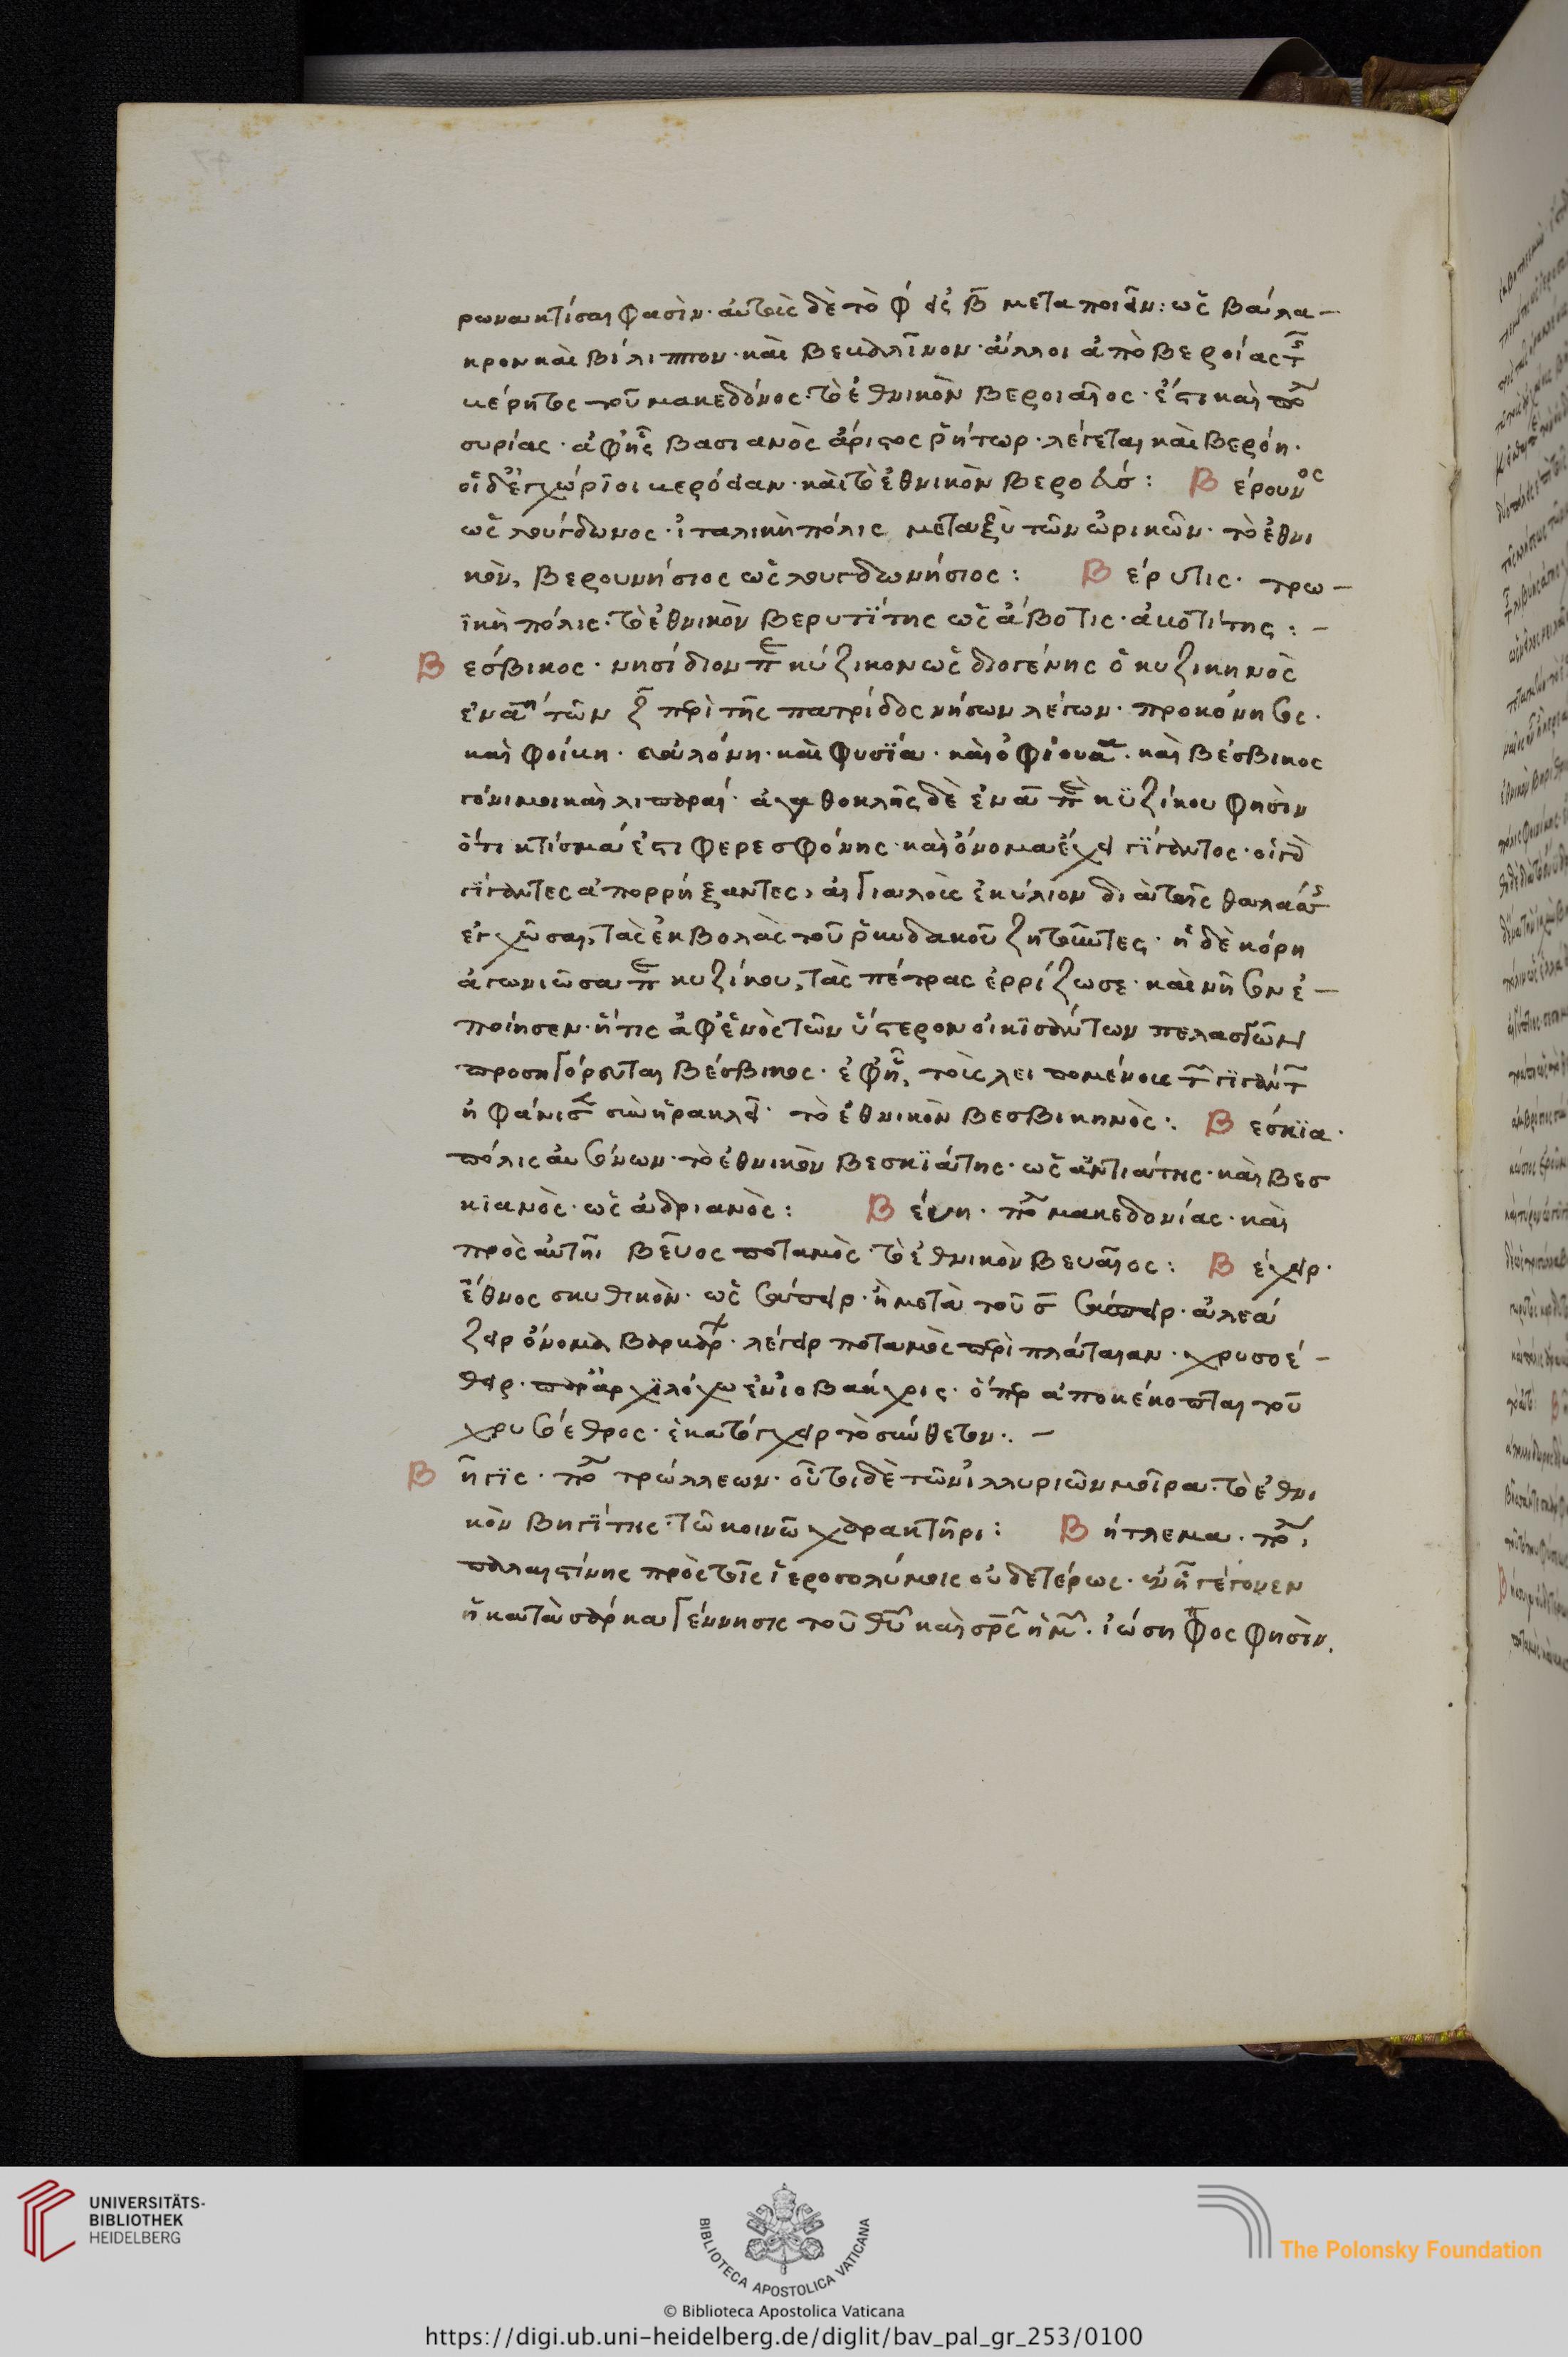 ρωνα κτίσαι φασὶν· αὐτοὶς δὲ τὸ φ εἰς β μεταποιεῖν: ὡς βάλα-
κρον καὶ βίλιππον· καὶ βεκαλῖνον· ἄλλοι ἀπὸ βεροίας τῆς
μέρητος τοῦ μακεδόνος· τὸ ἐθνικὸν βεροιαῖος· ἔστι καὶ πό
συρίας· ἀφ' ἧς βασιανὸς ἄριστος ῥήτωρ· λέγεται καὶ βερόη·
οἱ δ' ἐγχώριοι μερόειαν· καὶ τὸ ἐθνικὸν βεροεύσ: Βέρουνος
ὡς λούγδωνος· ἰταλικὴ πόλις μεταξὺ τῶν ὠρικῶν· τὸ ἐθνι
κὸν, βερουνήσιος ὡς λουγδωνήσιος: Βέρυτις· τρω-
ϊκὴ πόλις· τὸ ἐθνικὸν βερυτΐτης ὡς ἄβοτις· ἀμοτίτης:-
Βέσβικος· νησίδιον π κύζικον ὡς διογένης ὁ κυζικηνὸς
ἐν α τῶν ζ περὶ τῆς πατρίδος νήσων λέγων· προκόνησος·
καὶ φοίκη· αλόνη· καὶ φυσΐα· καὶ ὀφίουσα· καὶ βέσβικος
γόνιμοι καὶ λιπαραί· ἀγαθοκλῆς δὲ ἐν α π κϋζίκου φησὶν
ὅτι κτίσμά ἐστι φερεσφόνης· καὶ ὄνομα ἔχει γΐγαντος· οἱ γὰ
γΐγαντες ἀπορρήξαντες, αἰγιαλοὶς ἐκύλιον διὰ τῆς θαλάσ
ἐγχῶσαι, τὰς ἐκβολὰς τοῦ ῥκυδακοῦ ζητοῦντες· ἡ δὲ κόρη
ἀγωνιῶσα π κυζίκου, τὰς πέτρας ἐρρίζωσε· καὶ νῆσον ἐ-
ποίησεν· ἥτις ἀφ' ἑνὸς τῶν ὕστερον οἰκϊσάντων πελασγῶν
προσηγόρευται βέσβικος· ἐφ' ἧς, τοὶς λειπομένοις τῶν γϊγάντ
ἠφάνισε σὺν ἡρακλεῖ· τὸ ἐθνικὸν βεσβικηνὸς: Βέσκϊα·
πόλις αυσόνων· τὸ ἐθνικὸν βεσκϊάτης· ὡς ἀντιάτης· καὶ βεσ
κϊανὸς· ὡς ἀδριανὸς: Βεύη· πό μακεδονίας· καὶ
πρὸς αὐτῆι βεῦος ποταμὸς· τὸ ἐθνικὸν βευαῖος: Βέχειρ·
ἔθνος σκυθικὸν· ὡς σάπειρ· ἢ μετὰ τοῦ σ σάσπειρ· ἀλεά
ζειρ ὄνομα βαρβαρ· λέγειρ ποταμὸς περὶ πλάταιαν· χρυσοέ-
θειρ· παρ' ἀρχϊλόχω ἐν ἰοβάκχοις· ὅπερ ἀποκέκοπται τοῦ
χρυσοέθειρος· ἑκατόγχειρ τὸ σύνθετον·. -
Βῆγϊς· πό τρώλλεων· οὗτοι δὲ τῶν ἰλλυριῶν μοῖρα· τὸ ἐθνι
κὸν βηγΐτης· τῶ κοινῶ χαρακτῆρι: Βήτλεμα· πό,
παλαιστίνης πρὸς τοῖς ἱεροσολύμοις οὐδετέρως· ἐν ῆ γέγονεν
ἡ κατὰ σάρκα γέννησις τοῦ θυ καὶ σρς ἡμ. ἰώσηφος φησὶν.
UNIVERSITÄTS-
BIBLIOTHEK
HEIDELBERG
BIBLIOTECA APOSTOLICA VATICANA
The Polonsky Foundation
© Biblioteca Apostolica Vaticana
https://digi.ub.uni-heidelberg.de/diglit/bav_pal_gr_253/0100